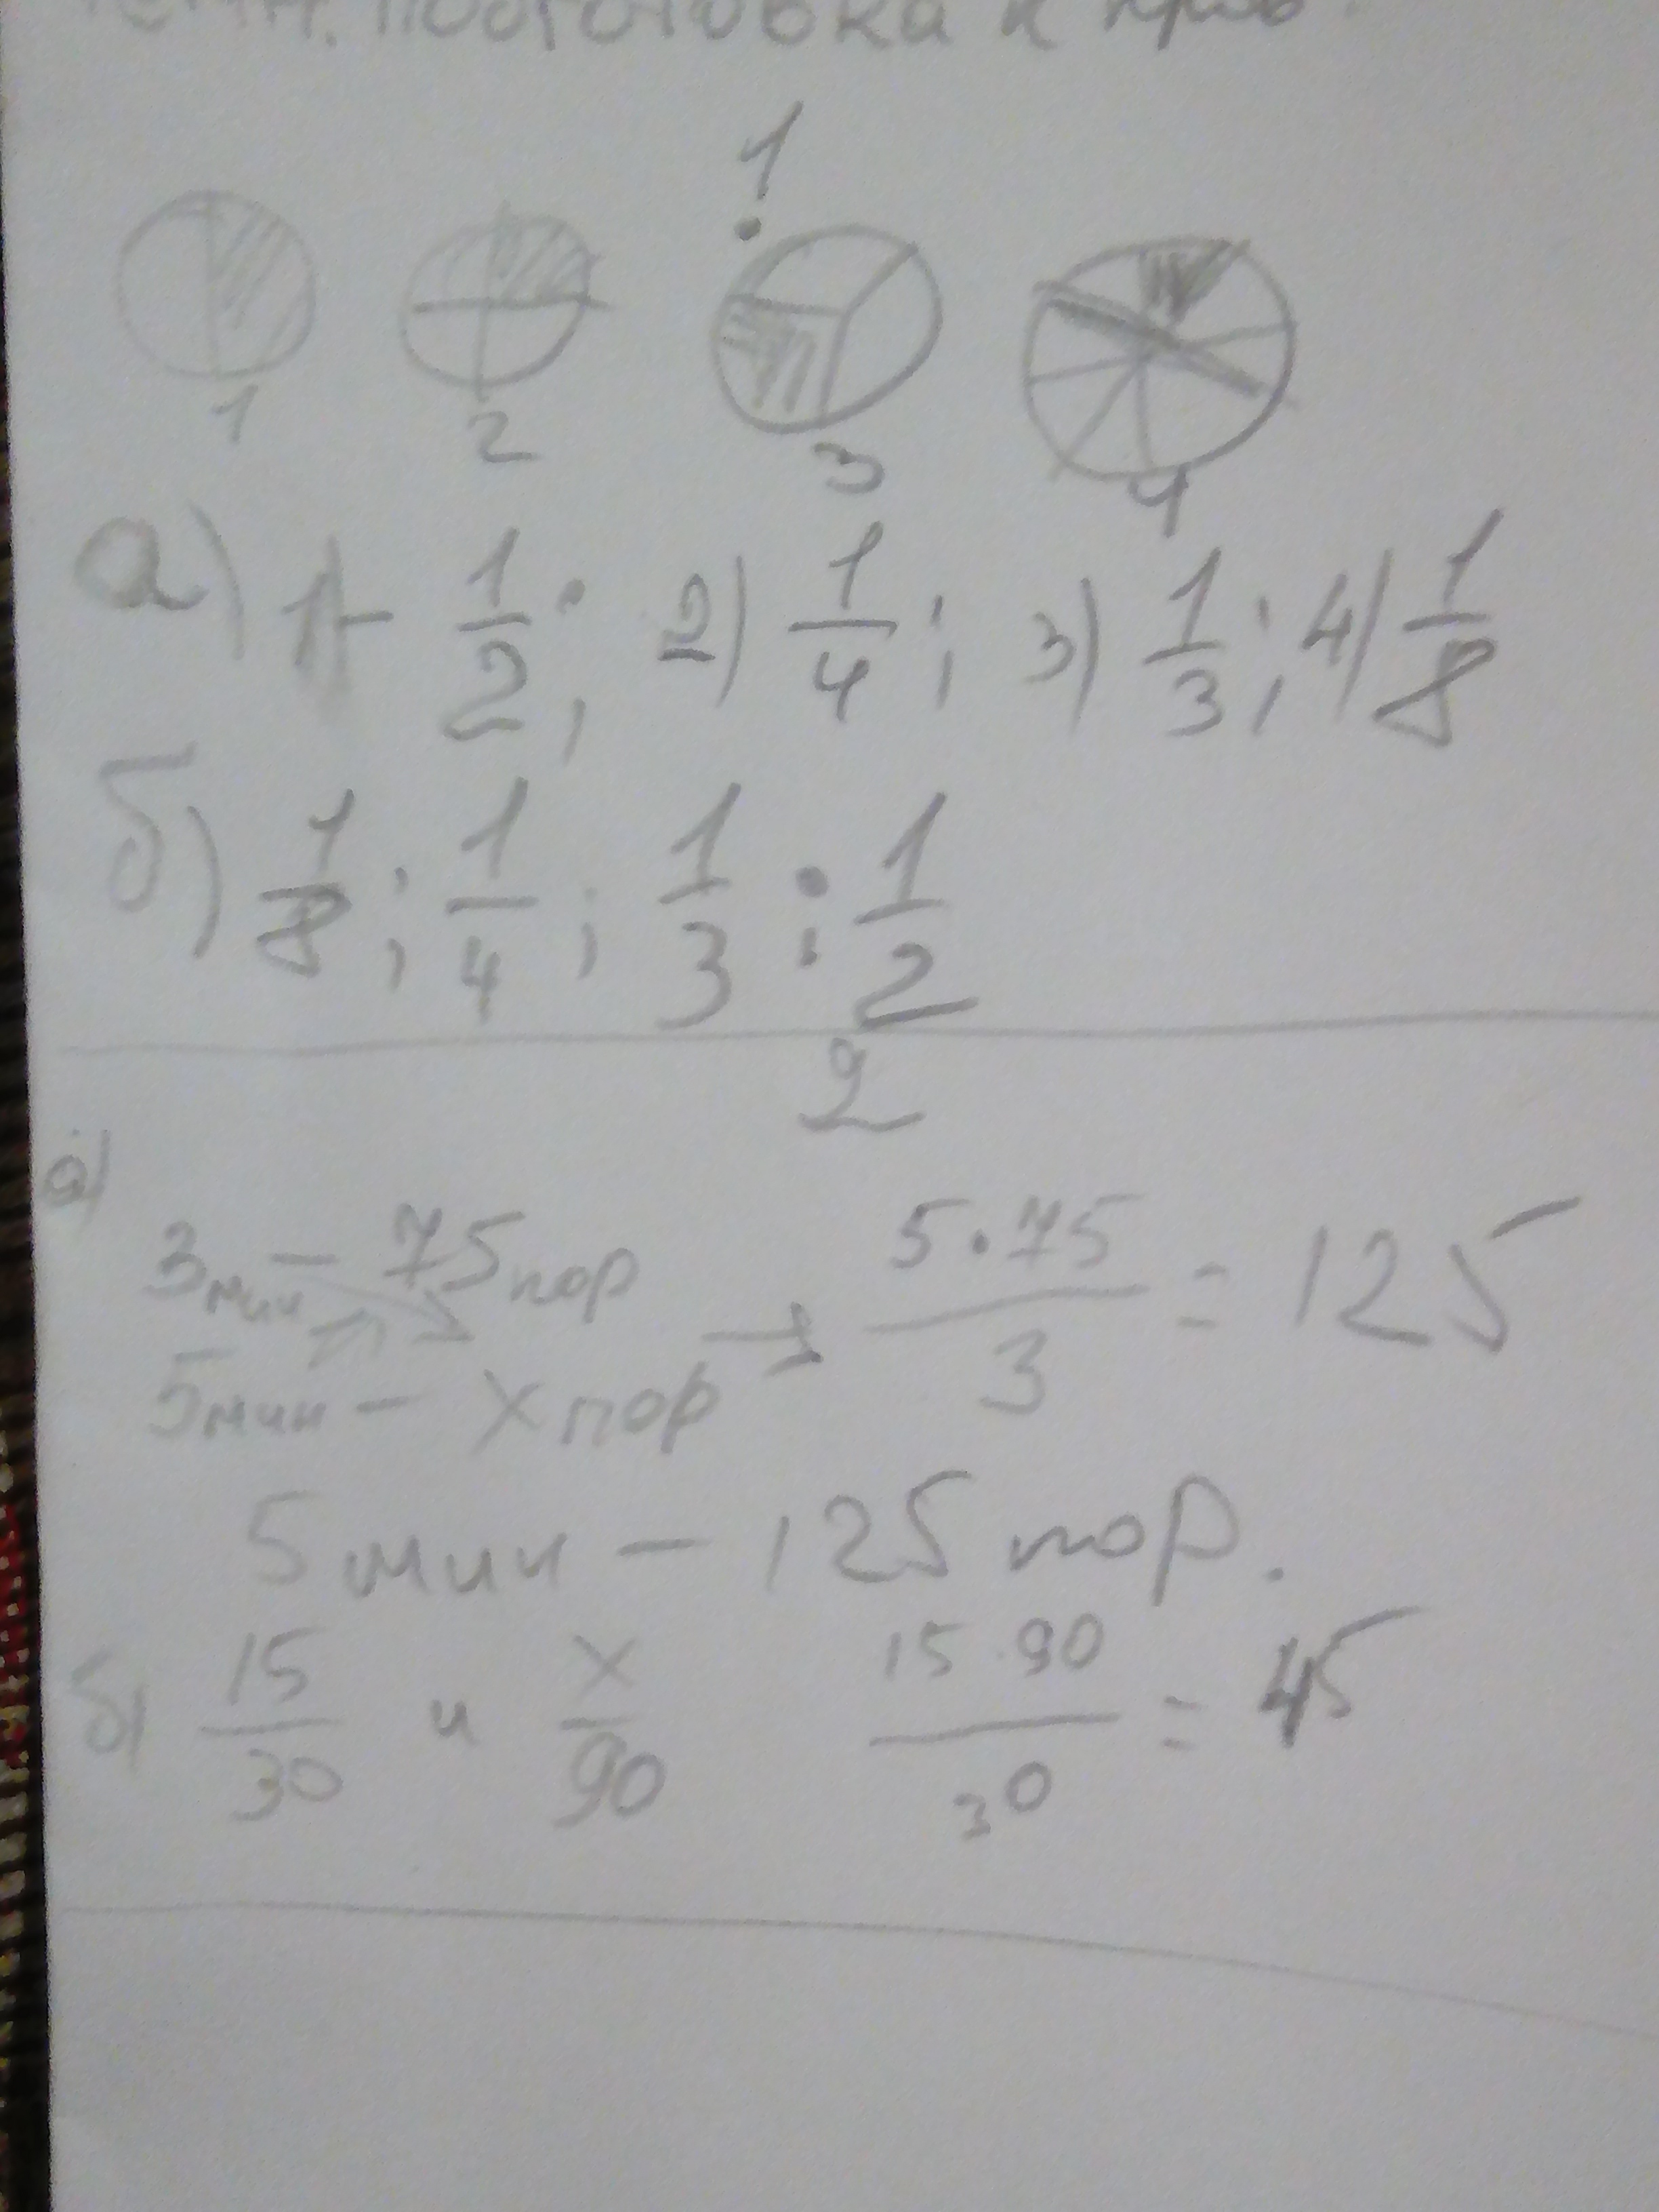 Подготовка к
1
1 2 3 4
а) 1) 1/2; 2) 1/4; 3) 1/3; 4) 1/8
б) 1/8; 1/4; 1/3; 1/2
2
а)
3мин – 75 пор
5мин – х пор → 5·75/3 = 125
5 мин – 125 пор.
б) 15/30 и х/90 15·90/30 = 45